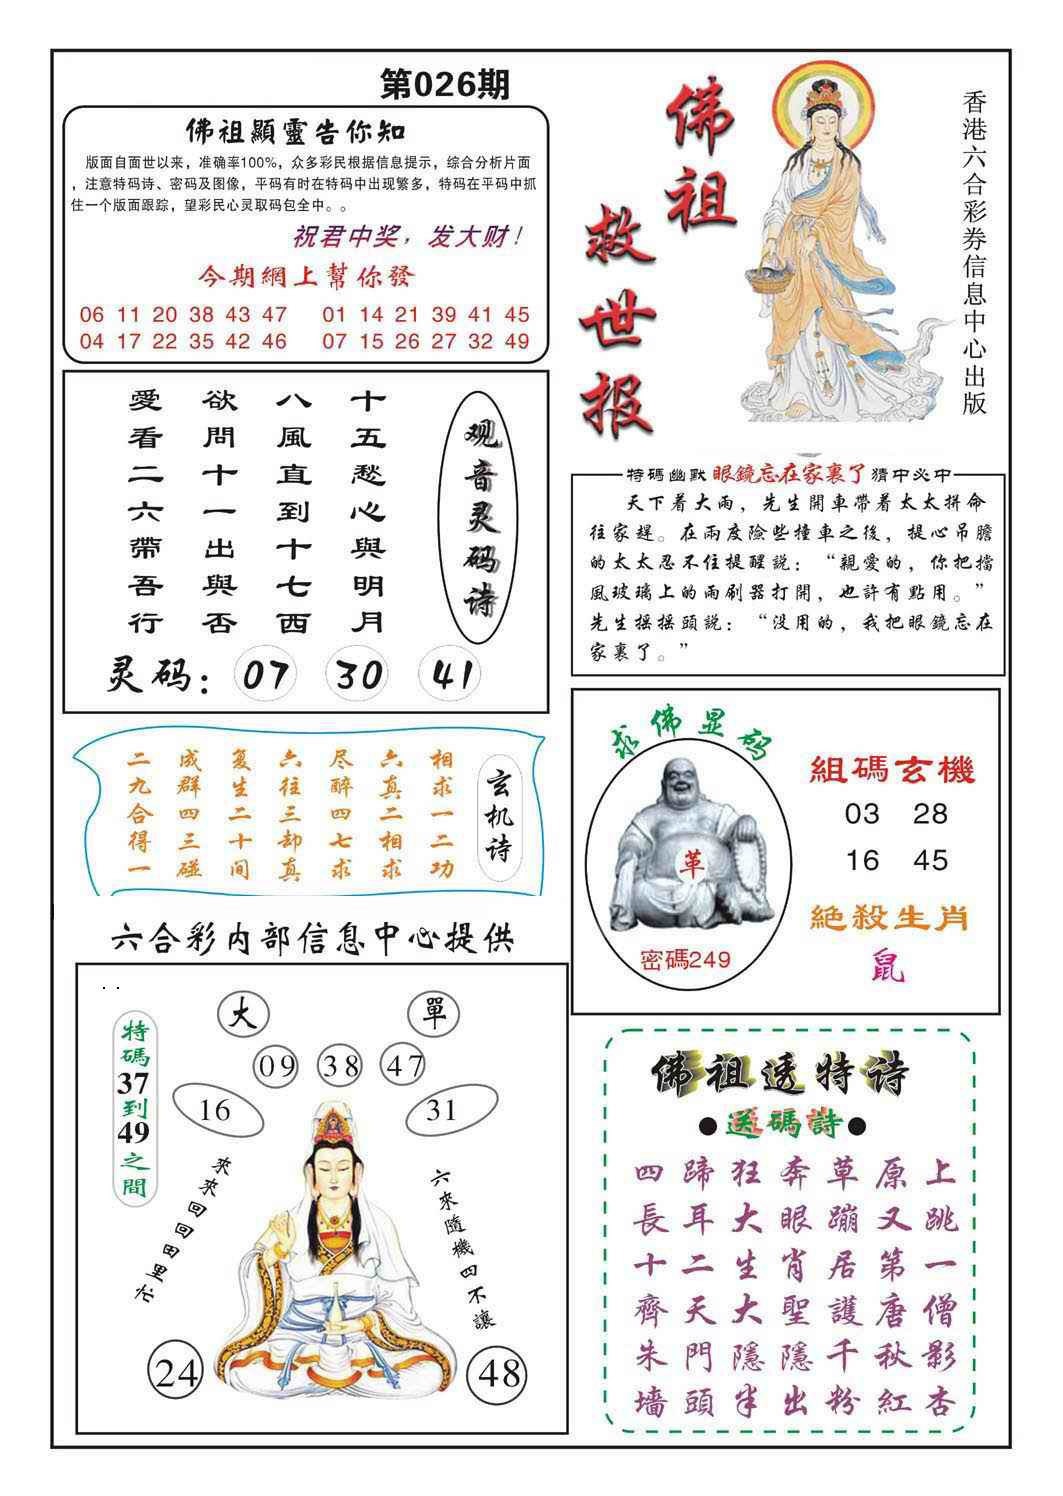 第026期
佛祖顯靈告你知
版面自面世以来，准确率100%，众多彩民根据信息提示，综合分析片面
，注意特码诗、密码及图像，平码有时在特码中出现繁多，特码在平码中抓
住一个版面跟踪，望彩民心灵取码包全中。。
祝君中奖，发大财！
今期網上幫你發
06 11 20 38 43 47 01 14 21 39 41 45
04 17 22 35 42 46 07 15 26 27 32 49
佛祖
救世报
香港六合彩券信息中心出版
观音灵码诗
十五愁心與明月
八風直到十七西
欲問十一出與否
愛看二六帶吾行
灵码：07 30 41
特碼幽默 眼鏡忘在家裏了 猜中必中
天下着大雨，先生開車帶着太太拼命
往家趕。在兩度險些撞車之後，提心吊膽
的太太忍不住提醒説：“親愛的，你把擋
風玻璃上的雨刷器打開，也許有點用。”
先生摇摇頭説：“没用的，我把眼鏡忘在
家裏了。”
玄机诗
相求一二功
六真二相求
尽醉四七求
六往三却真
复生二十间
成群四三碰
二九合得一
求佛显码
革
密碼249
組碼玄機
03 28
16 45
絕殺生肖
鼠
六合彩内部信息中心提供
特碼37到49之間
大 單
09 38 47
16 31
來來回回田里忙
六來隨機四不讓
24 48
佛祖透特诗
●送碼詩●
四蹄狂奔草原上
長耳大眼蹦又跳
十二生肖居第一
齊天大聖護唐僧
朱門隱隱千秋影
墙頭半出粉紅杏